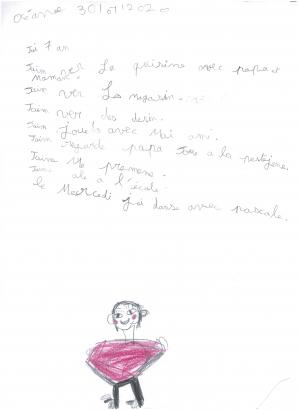 Océane 30/01/2020
J'ai 7 an
J'aim ver La quisine avec papa et
maman.
J'aim ver Les magasin.
J'aim ver des desin.
J'aim joue avec Mai ami.
J'aim regarde papa Joue a la
J'aime Me promene.
J'aime ale a l'école.
le Mercredi J'ai danse avec pascale.